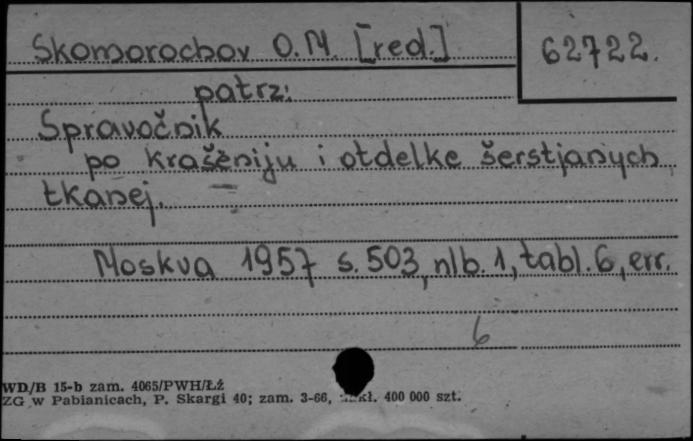 Skomorochov O.M. [red.]
62722.
patrz:
Spravočnik
po krašeniju i otdelke šerstjanych
tkanej.
Moskva 1957 s. 503, nlb. 1, tabl. 6, err.
6
WD/B 15-b zam. 4065/PWH/Łź
ZG w Pabianicach, P. Skargi 40; zam. 3-66, 400 000 szt.